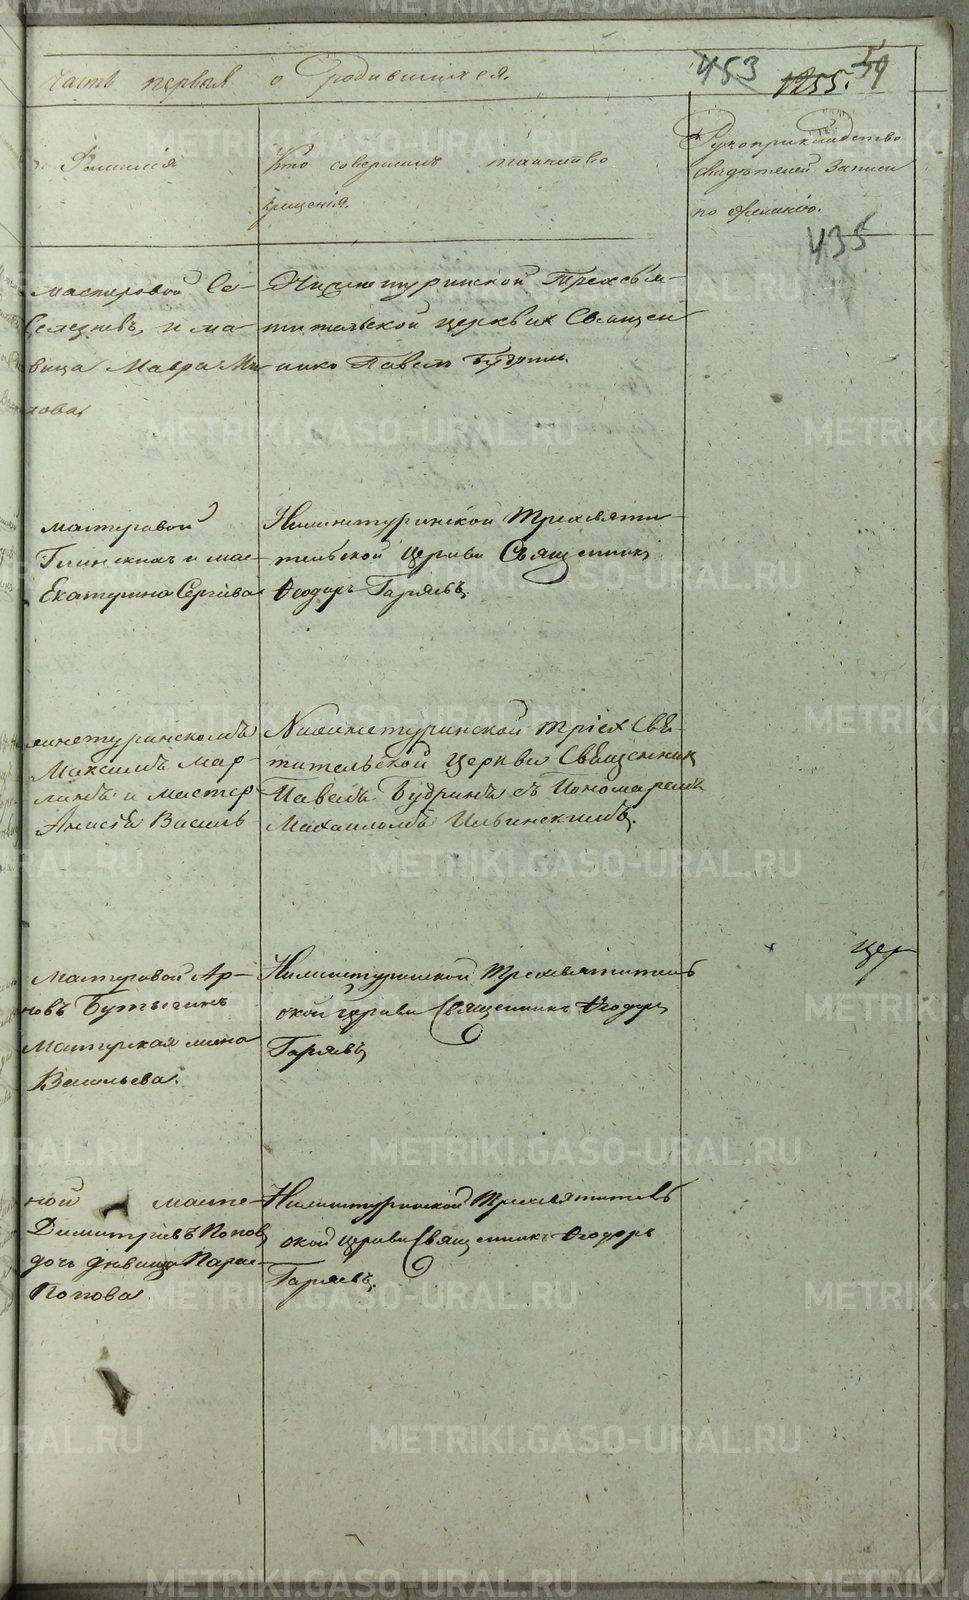 часть первая о родившихся.
453
1255. 59
Фамилія
Кто совершилъ таинство
крещенія.
Рукоприкладство
свидѣтелей записи
по желанію.
435
мастеровой Се-
Селезневъ, и ма-
вица Мавра Ми
лова
Нижнетуринской Трехсвя-
тительской церкви Священ
никъ Павелъ Будринъ
мастеровой
Глинскихъ и мас-
Екатерина Сергіева
Нижнетуринской Трехсвяти
тельской Церкви Священникъ
Ѳеодоръ Гаряевъ
нетуринскомъ
Максимъ Мар-
линъ и мастер
Анисія Василь
Нижнетуринской трїехСвя-
тительской Церкви Священник
Павелъ Будринъ съ Пономаремъ
Михаиломъ Ильинскимъ.
Мастеровой Ар-
новъ Бутыгинъ
Мастерская жена
Васильева.
Нижнетуринской Трехсвятитель
ской церкви Священникъ Ѳеодоръ
Гаряевъ
цер
ной масте-
Димитріевъ Попов
дочь дѣвица Парас-
Попова.
Нижнетуринской Трехсвятитель
ской церкви Священникъ Ѳеодоръ
Гаряевъ.
METRIKI.GASO-URAL.RU